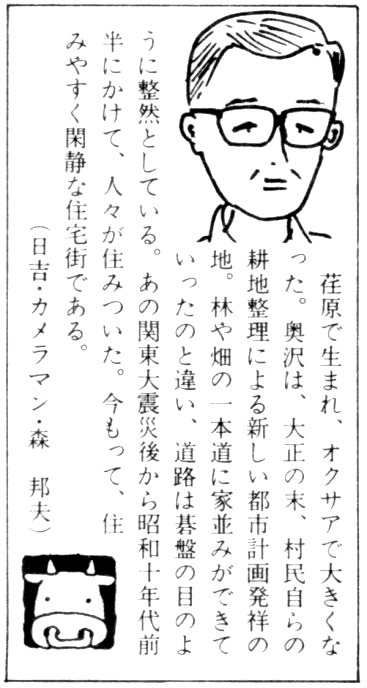 荏原で生まれ、オクサアで大きくな
った。奥沢は、大正の末、村民自らの
耕地整理による新しい都市計画発祥の
地。林や畑の一本道に家並みができて
いったのと違い、道路は碁盤の目のよ
うに整然としている。あの関東大震災後から昭和十年代前
半にかけて、人々が住みついた。今もって、住
みやすく閑静な住宅街である。
（日吉・カメラマン・森　邦夫）